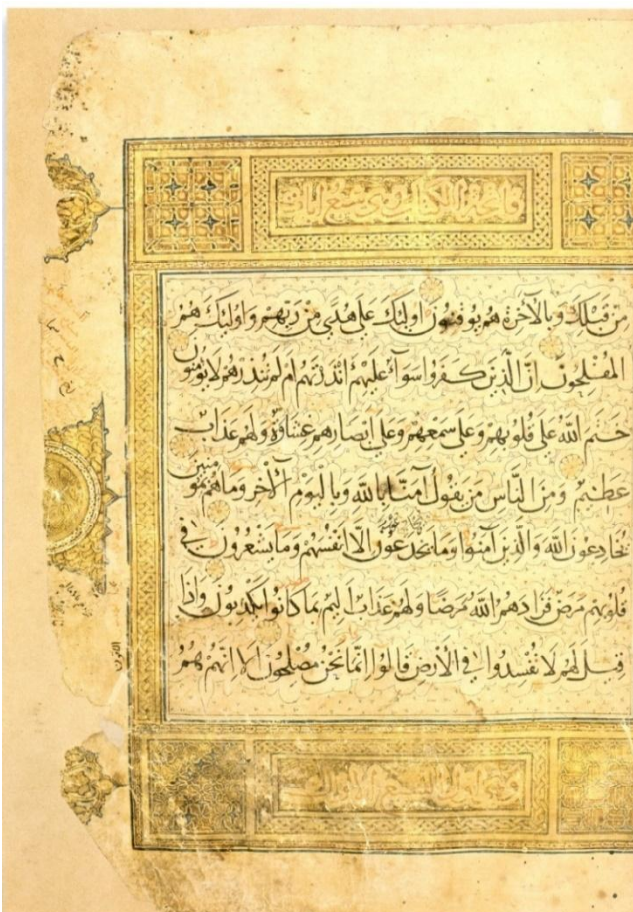 فاتحة الكتاب وهي سبع آيات
مِنْ قَبْلِكَ وَبِالْآخِرَةِ هُمْ يُوقِنُونَ اُولٰئِكَ عَلٰى هُدًى مِنْ رَبِّهِمْ وَاُولٰئِكَ هُمُ
الْمُفْلِحُونَ اِنَّ الَّذِينَ كَفَرُوا سَوَآءٌ عَلَيْهِمْ ءَاَنْذَرْتَهُمْ اَمْ لَمْ تُنْذِرْهُمْ لَا يُؤْمِنُونَ
خَتَمَ اللّٰهُ عَلٰى قُلُوبِهِمْ وَعَلٰى سَمْعِهِمْ وَعَلٰى اَبْصَارِهِمْ غِشَاوَةٌ وَلَهُمْ عَذَابٌ
عَظِيمٌ وَمِنَ النَّاسِ مَنْ يَقُولُ آمَنَّا بِاللّٰهِ وَبِالْيَوْمِ الْآخِرِ وَمَا هُمْ بِمُؤْمِنِينَ
يُخَادِعُونَ اللّٰهَ وَالَّذِينَ آمَنُوا وَمَا يَخْدَعُونَ اِلَّا اَنْفُسَهُمْ وَمَا يَشْعُرُونَ فِي
قُلُوبِهِمْ مَرَضٌ فَزَادَهُمُ اللّٰهُ مَرَضًا وَلَهُمْ عَذَابٌ اَلِيمٌ بِمَا كَانُوا يَكْذِبُونَ وَاِذَا
قِيلَ لَهُمْ لَا تُفْسِدُوا فِي الْاَرْضِ قَالُوا اِنَّمَا نَحْنُ مُصْلِحُونَ اَلَا اِنَّهُمْ هُمُ